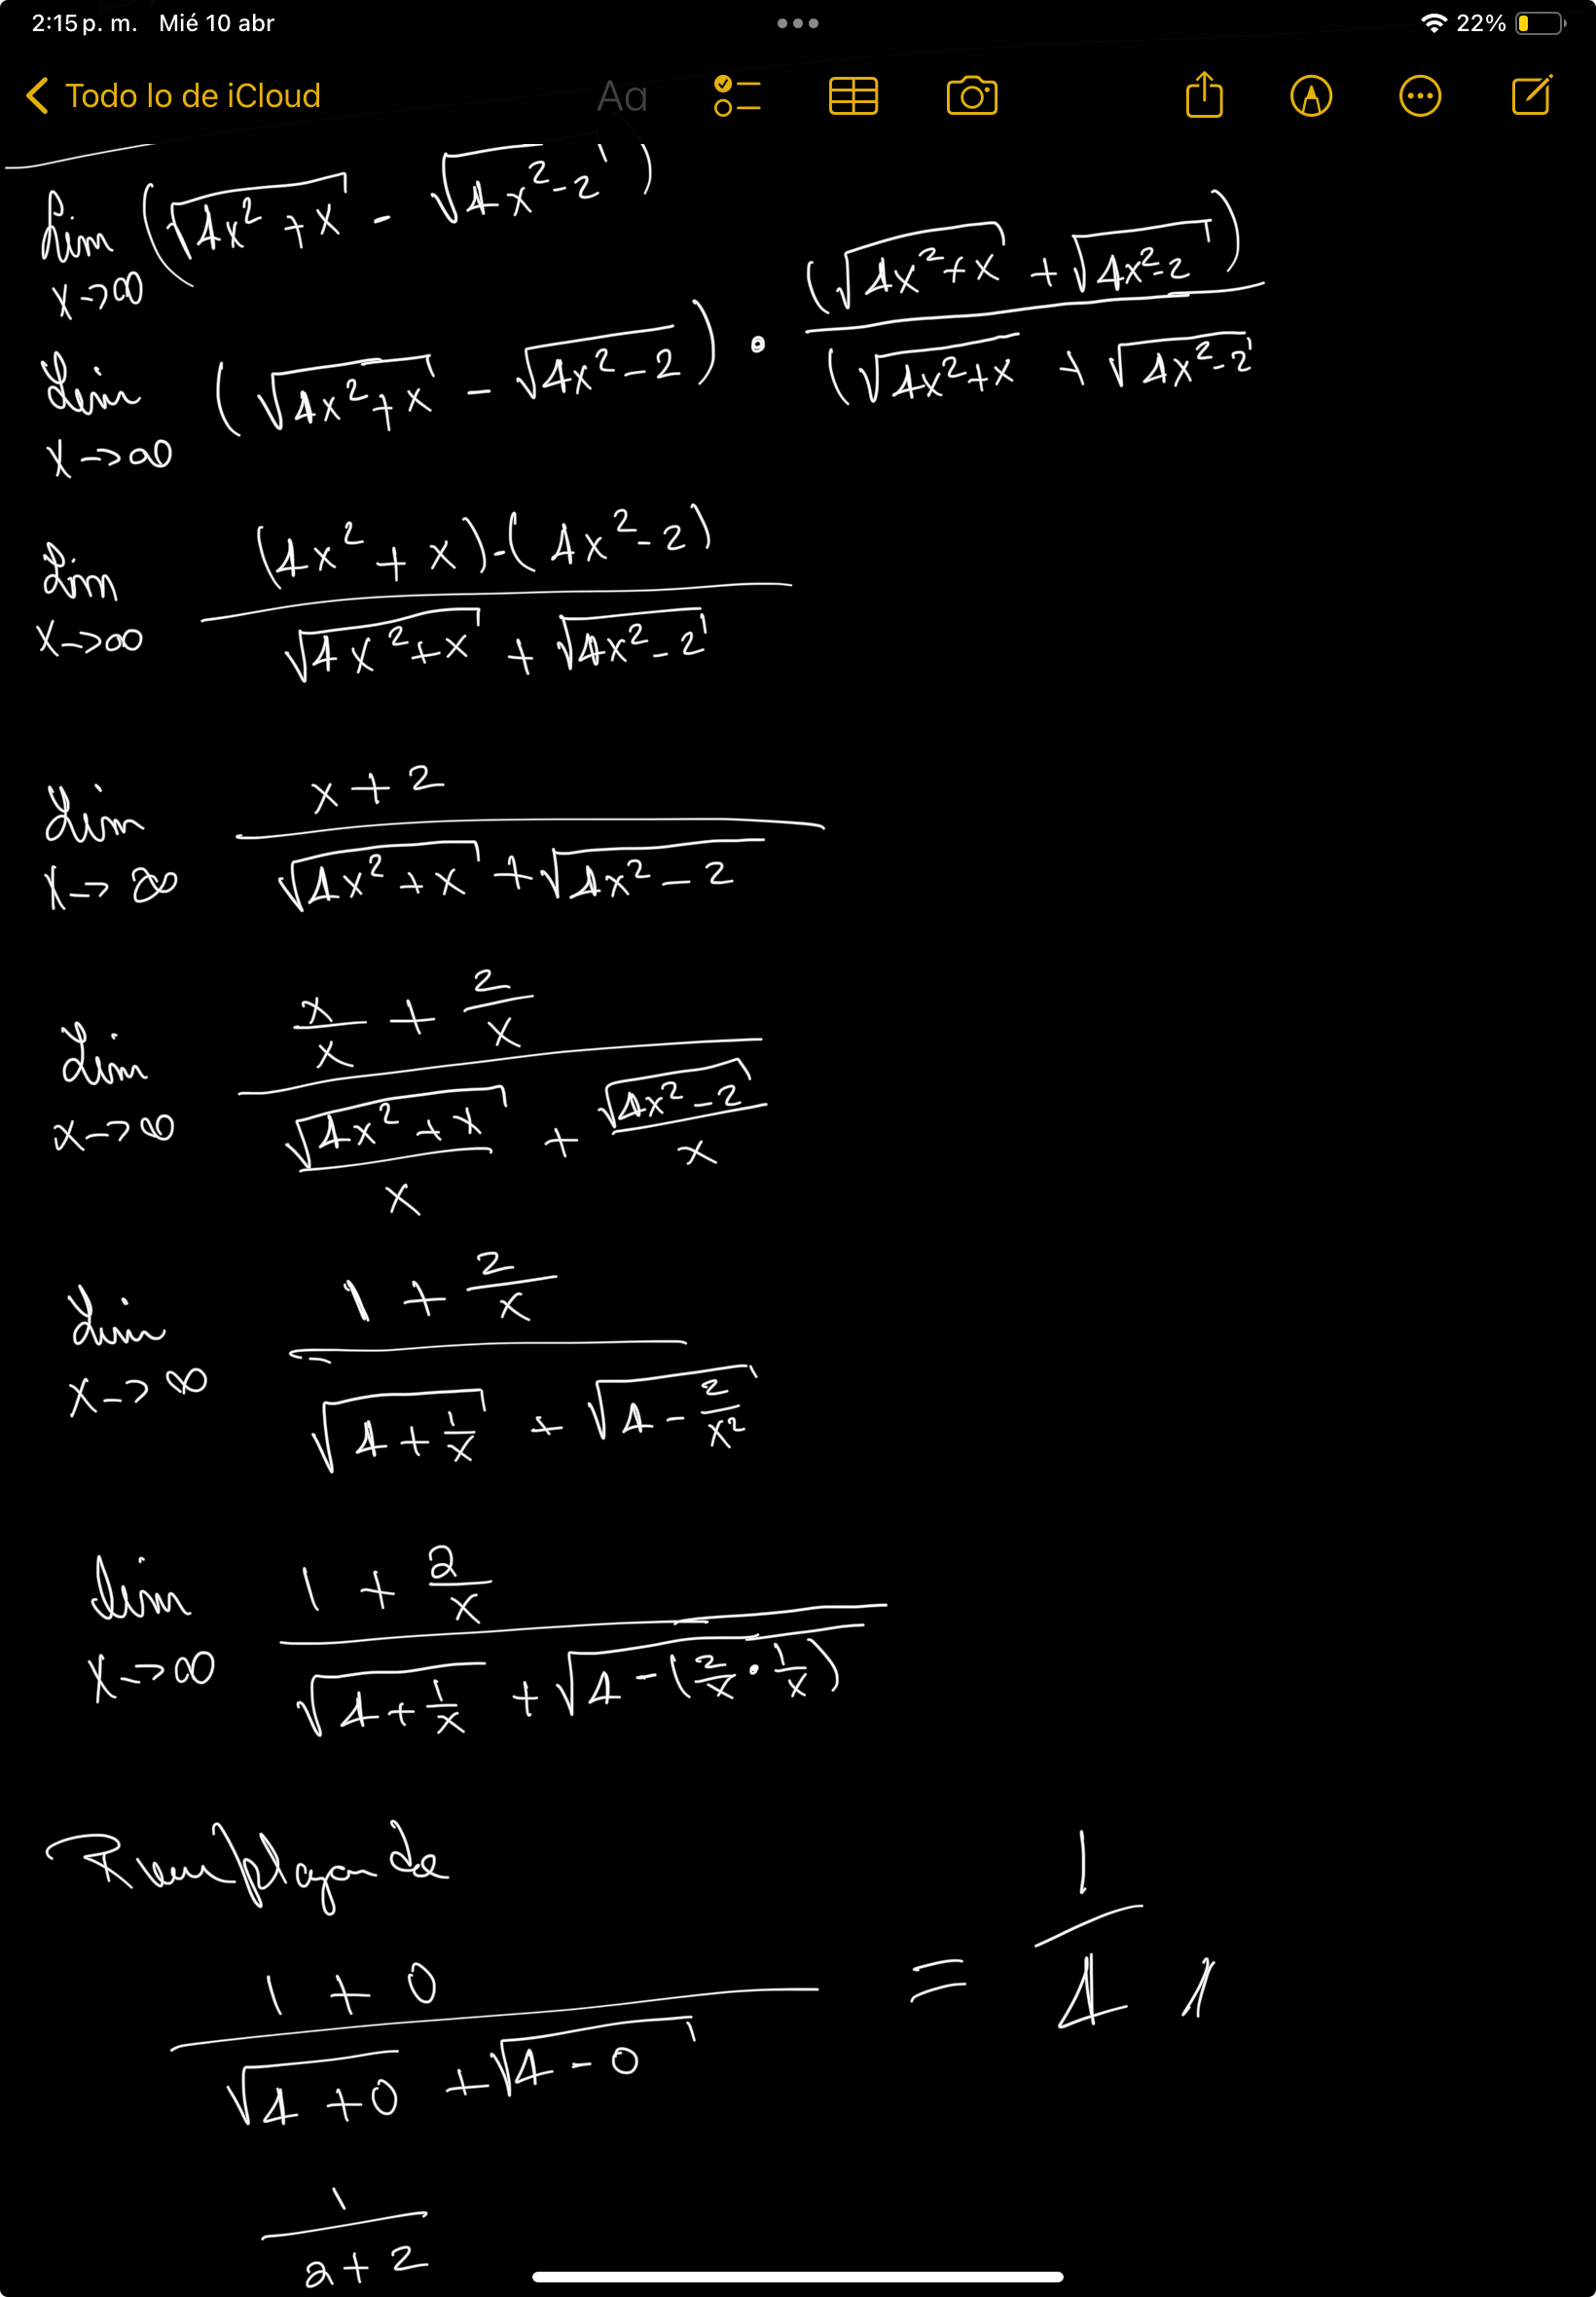 2:15 p. m. Mié 10 abr 22%
Todo lo de iCloud Aa
Lim x->∞ (√(4x²+x) - √(4x²-2))
Lim x->∞ (√(4x²+x) - √(4x²-2)) • (√(4x²+x) + √(4x²-2)) / (√(4x²+x) + √(4x²-2)
Lim x->∞ ((4x²+x)-(4x²-2)) / (√(4x²+x) + √(4x²-2))
Lim x->∞ (x+2) / (√(4x²+x) + √(4x²-2))
Lim x->∞ (x/x + 2/x) / (√(4x²+x)/x + √(4x²-2)/x)
Lim x->∞ (1 + 2/x) / (√(4+1/x) + √(4-2/x²))
Lim x->∞ (1 + 2/x) / (√(4+1/x) + √(4-(2/x•1/x)))
Remplazando
(1+0) / (√(4+0) + √(4-0)) = 1/4
1/(2+2)